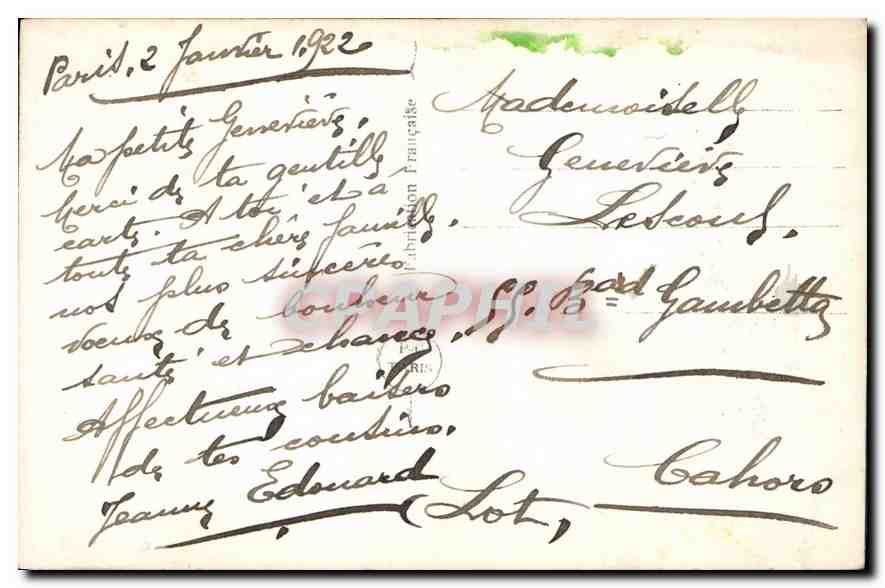 Paris, 2 Janvier 1922
Ma petite Geneviève,
Merci de ta gentille
carte. A toi et à
toute ta chère famille,
nos plus sincères
voeux de bonheur
santé et chance,
Affectueux baisers
de tes cousins.
Jeanne Edouard
Fabrication Française
PARIS
CARPHIL
Mademoiselle
Geneviève
Bard Gambetta
Cahors
(Lot,